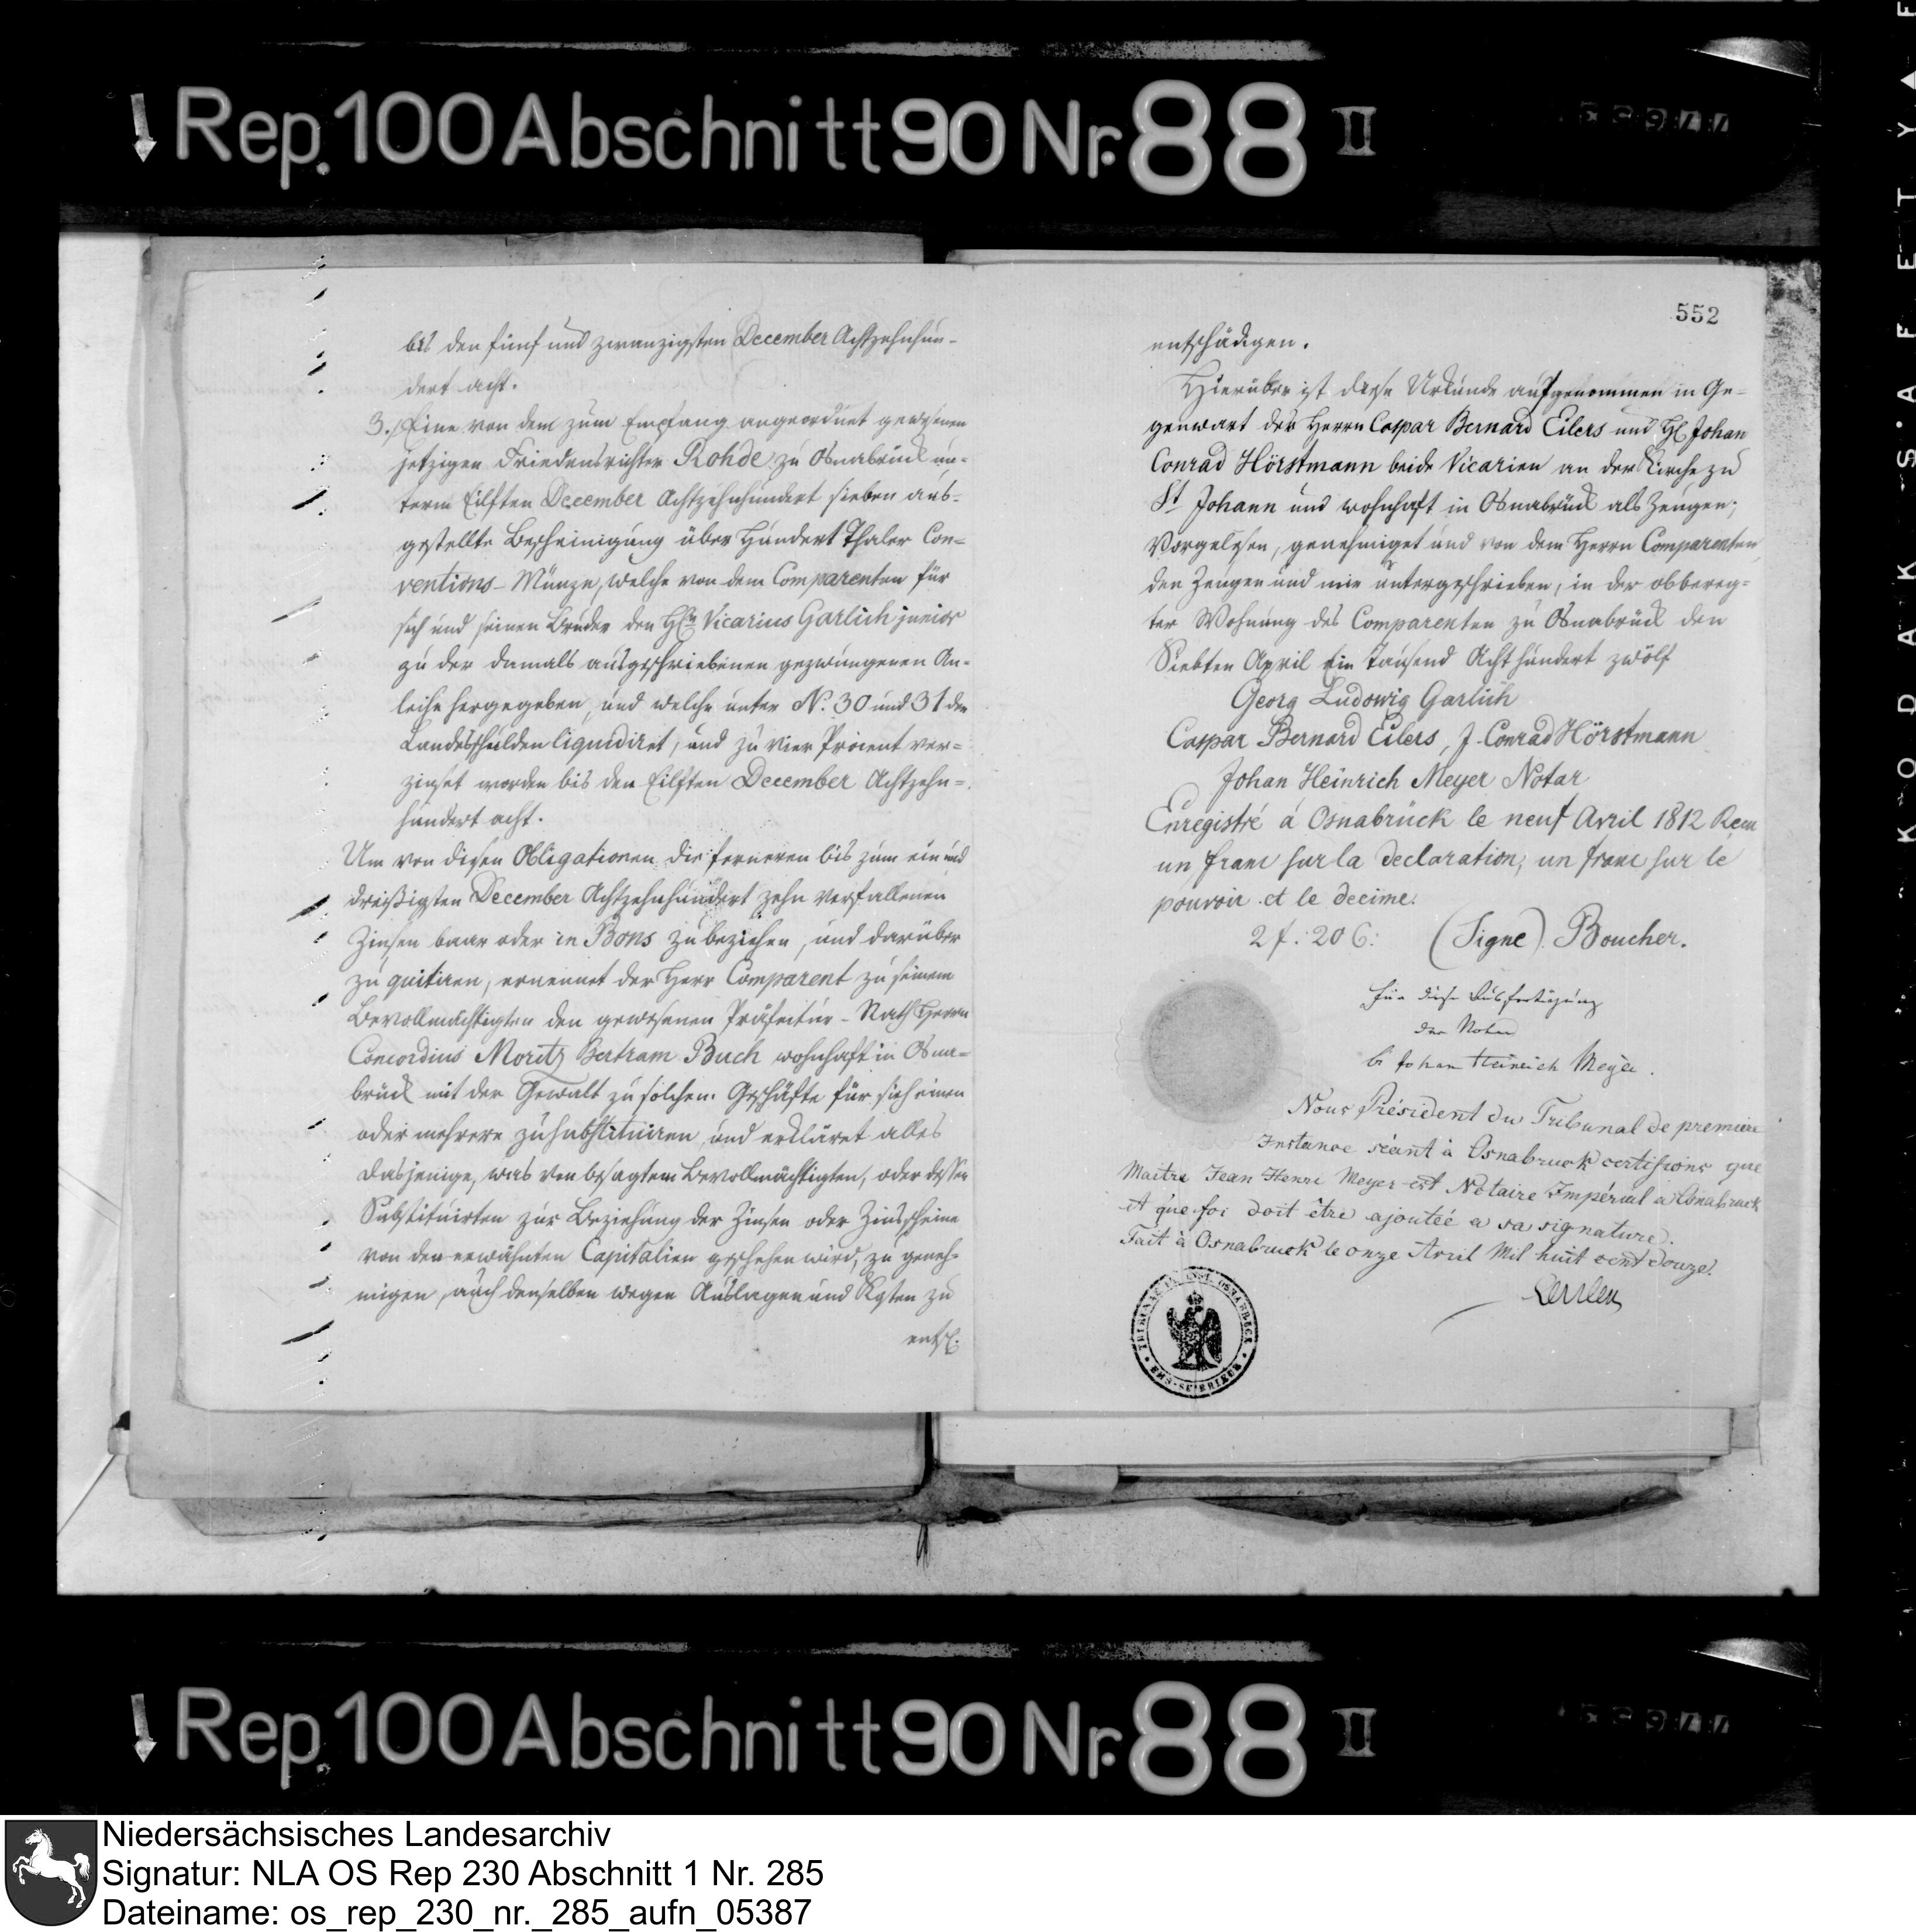 Rep. 100 Abschnitt 90 Nr. 88 II
bis den fünf und zwanzigsten December Achtzehnhun-
dert acht.
3.) Eine von dem zum Empfang angeordnet gewesenen
jetzigen Friedensrichter Rohde zu Osnabrück un-
term Eilften December Achtzehnhundert sieben aus-
gestellte Bescheinigung über Hundert Thaler Con-
ventions-Münze, welche von dem Comparenten für
sich und seinen Bruder den H. Vicarius Garlich junior
zu der damals ausgeschriebenen gezwungenen An-
leihe hergegeben, und welche unter N. 30 und 31 der
Landesschulden liquidiret, und zu vier Procent ver-
zinset worden bis den Eilften December Achtzehn-
hundert acht.
Um von diesen Obligationen die ferneren bis zum ein und
dreißigsten December Achtzehnhundert zehn verfallenen
Zinsen baar oder in Bons zu beziehen, und darüber
zu quitiren, ernennet der Herr Comparent zu seinem
Bevollmächtigten den gewesenen Präfectur-Rath Herrn
Concordius Moritz Bertram Buch wohnhaft in Osna-
brück mit der Gewalt zu solchem Geschäfte für sich einen
oder mehrere zu substituiren und erkläret alles
dasjenige, was von besagtem Bevollmächtigten, oder dessen
Substituirten zur Beziehung der Zinsen oder Zinsscheine
von den erwähnten Capitalien geschehen wird, zu geneh-
migen, auch denselben wegen Auslagen und Kosten zu
entsch.
552
entschädigen.
Hierüber ist diese Urkunde aufgenommen in Ge-
genwart der Herrn Caspar Bernard Eilers und H. Johan
Conrad Hörstmann beide Vicarien an der Kirche zu
St Johann und wohnhaft in Osnabrück als Zeugen;
Vorgelesen, genehmiget und von dem Herrn Comparenten
den Zeugen und mir unterschrieben, in der obbereg-
ter Wohnung des Comparenten zu Osnabrück den
Siebten April Ein Tausend Acht hundert zwölf
Georg Ludowig Garlich
Caspar Bernard Eilers, J. Conrad Hörstmann
Johan Heinrich Meyer Notar
Enregistré á Osnabrück le neuf Avril 1812 Recu
un franc sur la declaration, un franc sur le
pouvoir et le decime.
2 f: 20 C: (Signe) Boucher.
für diese Ausfertigung
der Notar
Johan Heinrich Meyer.
Nous Président du Tribunal de premiere
Instance séant à Osnabruck certifions que
Maitre Jean Henri Meyer est Notaire Impérial a Osnabruck
et que foi doit être ajoutéé a sa signature.
Fait à Osnabruck le onze Avril Mil huit cent douze.
Rep. 100 Abschnitt 90 Nr. 88 II
KODAK SAFETY
Niedersächsisches Landesarchiv
Signatur: NLA OS Rep 230 Abschnitt 1 Nr. 285
Dateiname: os_rep_230_nr._285_aufn_05387